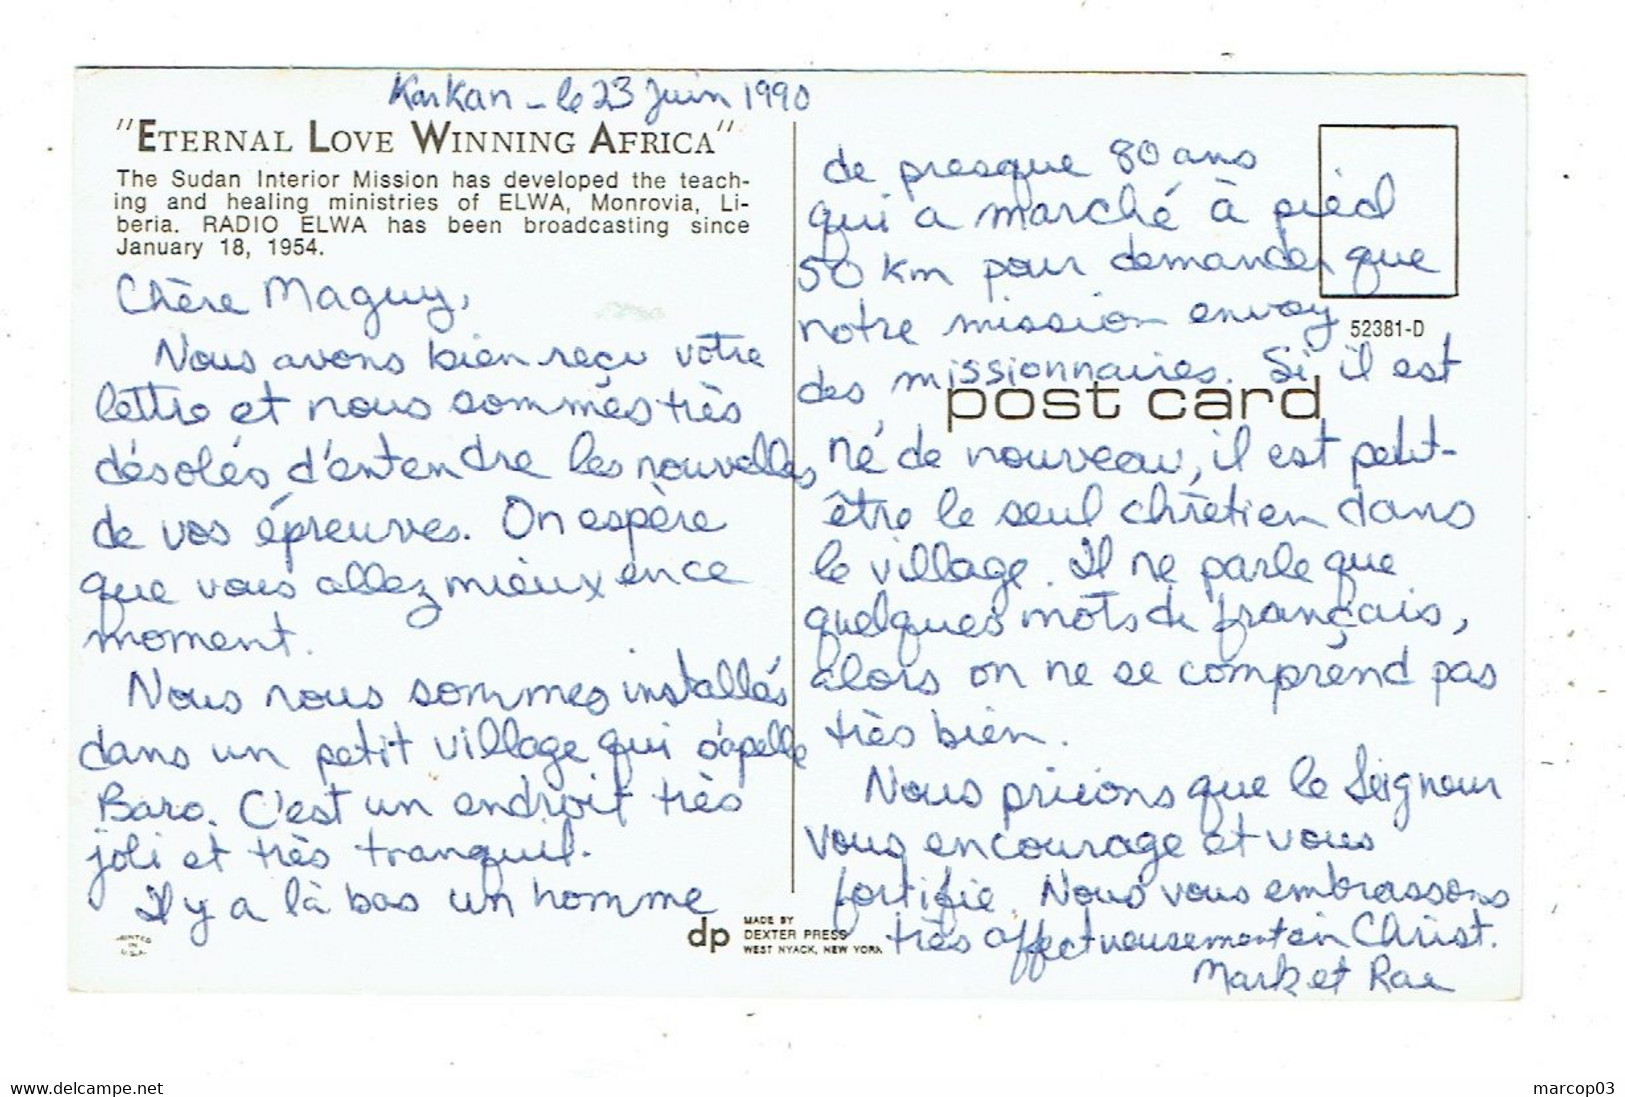 Kankan - le 23 Juin 1990
"ETERNAL LOVE WINNING AFRICA"
The Sudan Interior Mission has developed the teach-
ing and healing ministries of ELWA, Monrovia, Li-
beria. RADIO ELWA has been broadcasting since
January 18, 1954.
Chère Maguy,
Nous avons bien reçu votre
lettre et nous sommes très
désolés d'entendre les nouvelles
de vos épreuves. On espère
que vous allez mieux en ce
moment.
Nous nous sommes installés
dans un petit village qui s'apelle
Baro. C'est un endroit très
joli et très tranquil.
Il y a là bas un homme
de presque 80 ans
qui a marché à pied
50 km pour demander que
notre mission envoy
des missionnaires. Si il est
né de nouveau, il est petit-
être le seul chrétien dans
le village. Il ne parle que
quelques mots de français,
alors on ne se comprend pas
très bien.
Nous prieons que le Seigneur
vous encourage et vous
fortifie. Nous vous embrassons
très affectueusement en Christ.
Mark et Rae
52381-D
post card
dp
MADE BY
DEXTER PRESS
WEST NYACK, NEW YORK
PRINTED
IN
U.S.A.
marcop03
www.delcampe.net